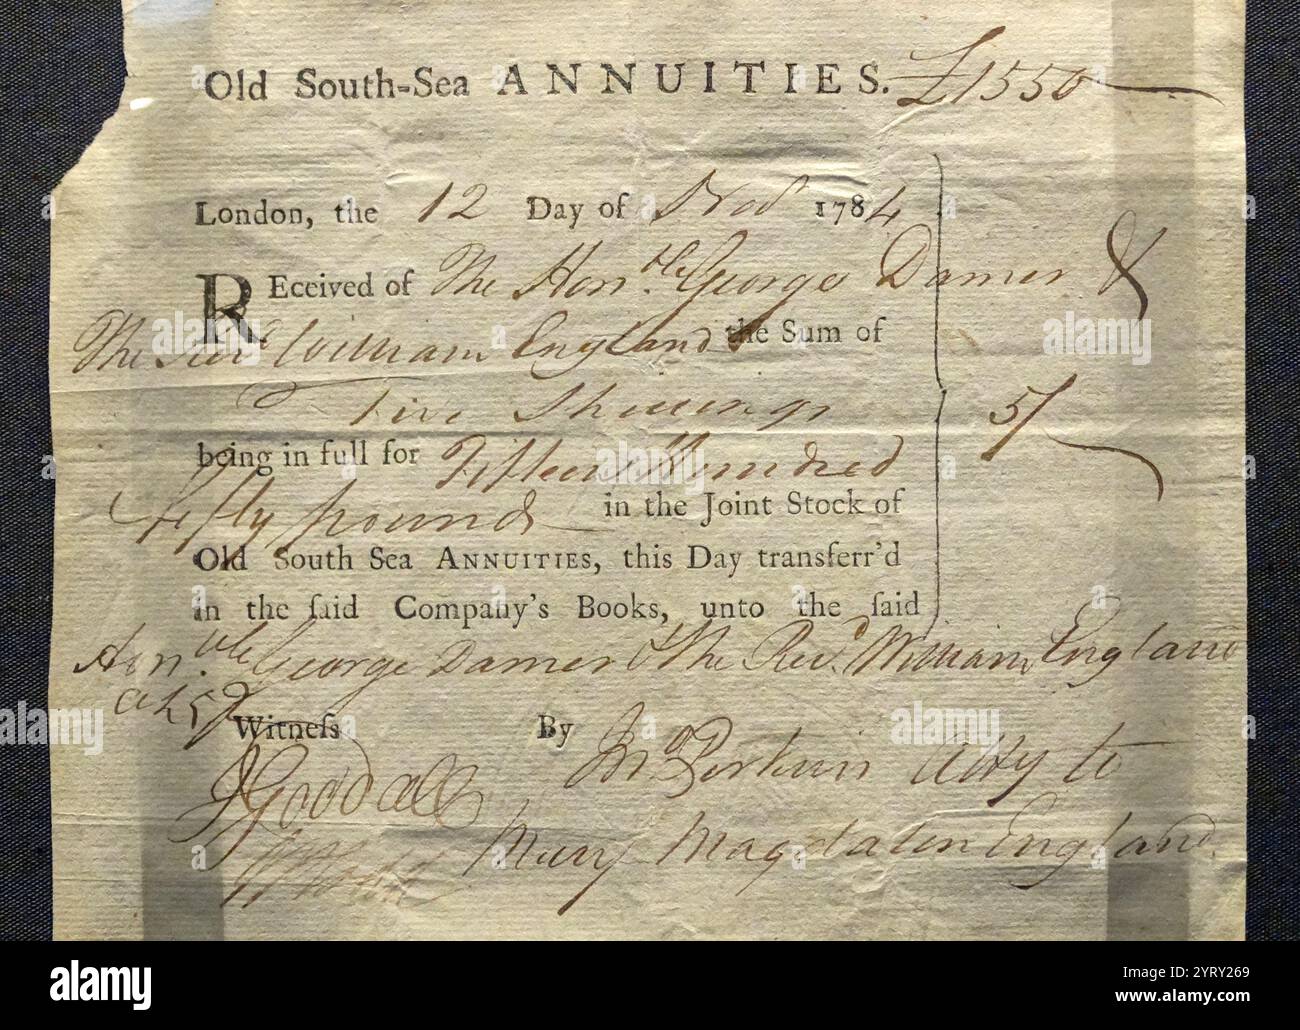 Old South-Sea ANNUITIES. £1550
London, the 12 Day of Novr 1784
REceived of The Honble George Damer &
The Revd William England the Sum of
Five Shillings 5/
being in full for Fifteen Hundred
Fifty pounds in the Joint Stock of
Old South Sea ANNUITIES, this Day tranſferr'd
in the ſaid Company's Books, unto the ſaid
Honble George Damer & The Revd William England
Witneſs By Jno Perkins Atty to
J Goodall
Mary Magdalen England
alamy
Image ID: 2YRY269
www.alamy.com